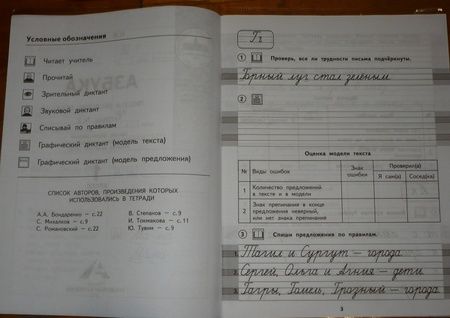 Условные обозначения
Читает учитель
Прочитай
Зрительный диктант
Звуковой диктант
Списывай по правилам
Графический диктант (модель текста)
Графический диктант (модель предложения)
СПИСОК АВТОРОВ, ПРОИЗВЕДЕНИЯ КОТОРЫХ
ИСПОЛЬЗОВАЛИСЬ В ТЕТРАДИ
А.А. Бондаренко — с.22
С. Михалков — с.9
С. Романовский — с.22
В. Степанов — с.9
И. Токмакова — с.11
Ю. Тувим — с.9
Гг
1 Проверь, все ли трудности письма подчёркнуты.
Грный луг стал зелёным
2
Оценка модели текста
№ Виды ошибок Знак ошибки Проверил(а)
Я сам(а) Сосед(ка)
1 Количество предложений
в тексте и в модели
2 Знак препинания в конце
предложения неверный,
или нет знака препинания
3 Спиши предложения по правилам.
1. Тагил и Сургут — города
2. Сергей, Ольга и Агния — дети
3. Гагры, Гомель, Грозный — города
3